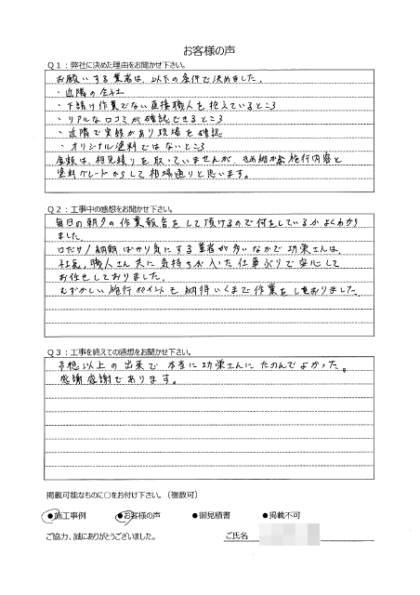 お客様の声
Q1：弊社に決めた理由をお聞かせ下さい。
お願いする業者は、以下の条件で決めました。
・近隣の会社
・下請け作業でない直接職人を抱えているところ
・リアルな口コミが確認できるところ
・近隣で実績があり現場を確認
・オリジナル塗料ではないところ
金額は、相見積りを取っていませんが、きめ細かな施行内容と
塗料グレードからして相場通りと思います。
Q2：工事中の感想をお聞かせ下さい。
毎日の朝夕の作業報告をして頂けるので何をしているかよくわかり
ました。
工期ばかり気にする業者が多いなかで功栄さんは、
社長、職人さん共に気持ちが入った仕事ぶりで安心して
お任せしておりました。
むずかしい施行ポイントも納得いくまで作業をしておりました。
Q3：工事を終えての感想をお聞かせ下さい。
予想以上の出来で本当に功栄さんにたのんでよかった。
感謝感謝であります。
掲載可能なものに○をお付け下さい。（複数可）
●施工事例 ●お客様の声 ●御見積書 ●掲載不可
ご協力、誠にありがとうございました。 ご氏名